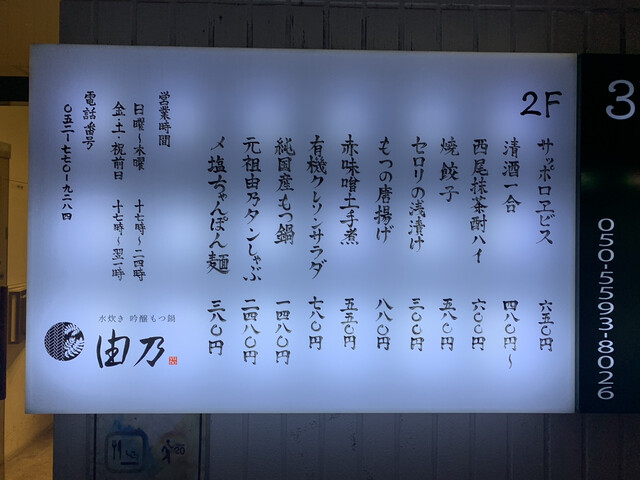 2F
サッポロヱビス 六五〇円
清酒一合 四八〇円〜
西尾抹茶酎ハイ 六〇〇円
焼餃子 五八〇円
セロリの浅漬け 三〇〇円
もつの唐揚げ 八八〇円
赤味噌土手煮 五五〇円
有機クレソンサラダ 七八〇円
純国産もつ鍋 一四八〇円
元祖由乃タンしゃぶ 二四八〇円
〆塩ちゃんぽん麺 三八〇円
営業時間
日曜〜木曜 十七時〜二四時
金・土・祝前日 十七時〜翌一時
電話番号
〇五二-七七〇-九二八四
水炊き 吟醸もつ鍋
由乃
3
050-5593-8026